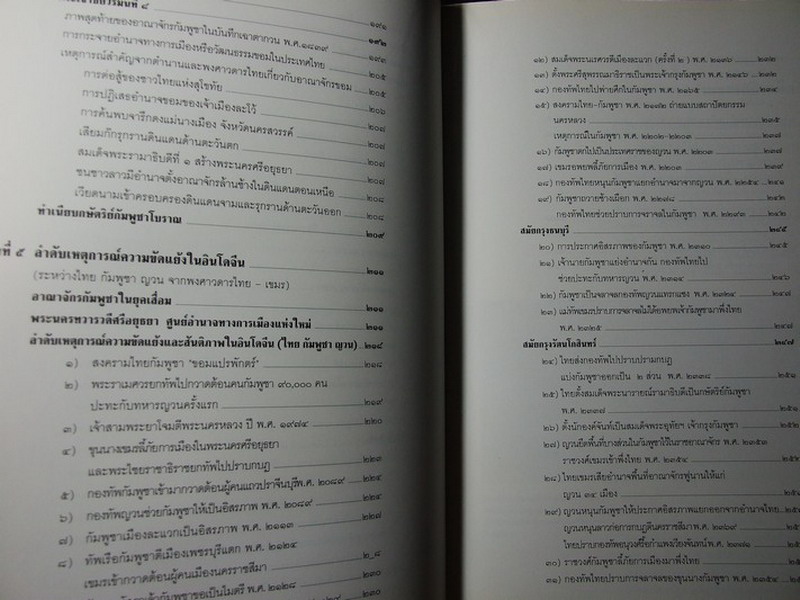 ภาพสุดท้ายของอาณาจักรกัมพูชาในบันทึกเฉาตากวน พ.ศ.๑๘๓๙ ๑๙๒
การกระจายอำนาจทางการเมืองหรือวัฒนธรรมขอมในประเทศไทย ๑๙๓
เหตุการณ์สำคัญจากตำนานและพงศาวดารไทยเกี่ยวกับอาณาจักรขอม ๒๐๕
การต่อสู้ของชาวไทยแห่งสุโขทัย ๒๐๕
การปฏิเสธอำนาจขอมของเจ้าเมืองละโว้ ๒๐๖
การค้นพบจารึกดงแม่นางเมือง จังหวัดนครสวรรค์ ๒๐๗
เสียมก๊กรุกรานดินแดนด้านตะวันตก ๒๐๗
สมเด็จพระรามาธิบดีที่ ๑ สร้างพระนครศรีอยุธยา ๒๐๗
ชนชาวลาวมีอำนาจตั้งอาณาจักรล้านช้างในดินแดนตอนเหนือ ๒๐๘
เวียดนามเข้าครอบครองดินแดนจามและรุกรานด้านตะวันออก ๒๐๘
ทำเนียบกษัตริย์กัมพูชาโบราณ ๒๐๙
ที่ ๕ ลำดับเหตุการณ์ความขัดแย้งในอินโดจีน ๒๑๑
(ระหว่างไทย กัมพูชา ญวน จากพงศาวดารไทย - เขมร)
อาณาจักรกัมพูชาในยุคเสื่อม ๒๑๑
พระนครทวาราวดีศรีอยุธยา ศูนย์อำนาจทางการเมืองแห่งใหม่ ๒๑๑
ลำดับเหตุการณ์ความขัดแย้งและสันติภาพในอินโดจีน (ไทย กัมพูชา ญวน) ๒๑๘
๑) สงครามไทยกัมพูชา "ขอมแปรพักตร์" ๒๑๘
๒) พระราเมศวรยกทัพไปกวาดต้อนคนกัมพูชา ๙๐,๐๐๐ คน
ปะทะกับทหารญวนครั้งแรก ๒๑๙
๓) เจ้าสามพระยาโจมตีพระนครหลวง ปี พ.ศ. ๑๙๗๔ ๒๒๐
๔) ขุนนางเขมรลี้ภัยการเมืองในพระนครศรีอยุธยา
และพระไชยราชาธิราชยกทัพไปปราบกบฏ ๒๒๓
๕) กองทัพกัมพูชาเข้ามากวาดต้อนผู้คนแถวปราจีนบุรีพ.ศ. ๒๐๘๙ ๒๒๔
๖) กองทัพญวนช่วยกัมพูชาให้เป็นอิสรภาพ พ.ศ. ๒๐๘๙ ๒๒๔
๗) กัมพูชาเมืองละแวกเป็นอิสรภาพ พ.ศ. ๒๑๑๓ ๒๒๗
๘) ทัพเรือกัมพูชาตีเมืองเพชรบุรีแตก พ.ศ. ๒๑๒๔
เขมรเข้ากวาดต้อนผู้คนเมืองนครราชสีมา
กัมพูชาขอเป็นไมตรี พ.ศ. ๒๑๒๘ ๒๓๐
๑๒) สมเด็จพระนเรศวรตีเมืองละแวก (ครั้งที่ ๒ ) พ.ศ. ๒๑๓๖ ๒๓๒
๑๓) ตั้งพระศรีสุพรรณมาธิราชเป็นพระเจ้ากรุงกัมพูชา พ.ศ. ๒๑๔๖ ๒๓๒
๑๔) กองทัพไทยไปพ่ายศึกในกัมพูชา พ.ศ. ๒๑๖๕ ๒๓๔
๑๕) สงครามไทย-กัมพูชา พ.ศ. ๒๑๗๒ ถ่ายแบบสถาปัตยกรรม
นครหลวง ๒๓๕
เหตุการณ์ในกัมพูชา พ.ศ. ๒๒๐๒-๒๒๐๓ ๒๓๗
๑๖) กัมพูชาตกไปเป็นประเทศราชของญวน พ.ศ. ๒๒๐๓ ๒๓๗
๑๗) เขมรอพยพลี้ภัยการเมือง พ.ศ. ๒๒๐๓ ๒๓๙
๑๘) กองทัพไทยหนุนกัมพูชาแยกอำนาจมาจากญวน พ.ศ. ๒๒๕๔ ๒๔๑
๑๙) กัมพูชาถวายช้างเผือก พ.ศ. ๒๒๗๘ ๒๔๒
กองทัพไทยช่วยปราบการจราจลในกัมพูชา พ.ศ. ๒๒๙๓ ๒๔๒
สมัยกรุงธนบุรี ๒๔๕
๒๐) การประกาศอิสรภาพของกัมพูชา พ.ศ. ๒๓๑๐ ๒๔๕
๒๑) เจ้านายกัมพูชาแย่งอำนาจกัน กองทัพไทยไป
ช่วยปะทะกับทหารญวน พ.ศ. ๒๓๑๔ ๒๔๖
๒๒) กัมพูชาเป็นจลาจลกองทัพญวนแทรกแซง พ.ศ. ๒๓๒๔ ๒๔๗
๒๓) แม่ทัพเขมรปราบการจราจลไม่ได้อพยพเจ้ากัมพูชามาพึ่งไทย
พ.ศ. ๒๓๒๕ ๒๔๗
สมัยกรุงรัตนโกสินทร์ ๒๔๗
๒๔) ไทยส่งกองทัพไปปราบปรามกบฏ
แบ่งกัมพูชาออกเป็น ๒ ส่วน พ.ศ. ๒๓๓๘ ๒๕๑
๒๕) ไทยตั้งสมเด็จพระนารายณ์รามาธิบดีเป็นกษัตริย์กัมพูชา
พ.ศ. ๒๓๓๗ ๒๕๑
๒๖) ตั้งนักองค์จันท์เป็นสมเด็จพระอุทัยฯ เจ้ากรุงกัมพูชา ๒๕๒
๒๗) ญวนยึดพื้นที่บางส่วนในกัมพูชาไว้ในราชอาณาจักร พ.ศ. ๒๓๕๓
ราชวงศ์เขมรเข้าพึ่งไทย พ.ศ. ๒๓๕๔ ๒๕๒
๒๘) ไทยเขมรเสียอำนาจพื้นที่อาณาจักรฟูนานให้แก่
ญวน ๓๔ เมือง
๒๙) ญวนหนุนกัมพูชาให้ประกาศอิสรภาพแยกออกจากอำนาจไทย
ญวนหนุนลาวก่อการกบฏตีนครราชสีมา พ.ศ. ๒๓๖๙
ไทยปราบกองทัพอนุวงศ์รื้อกำแพงเวียงจันทน์ พ.ศ. ๒๓๗๑
๓๐) ราชวงศ์กัมพูชาลี้ภัยการเมืองมาพึ่งไทย
๓๑) กองทัพไทยปราบการจราจลของขุนนางกัมพูชา พ.ศ. ๒๓๕๔